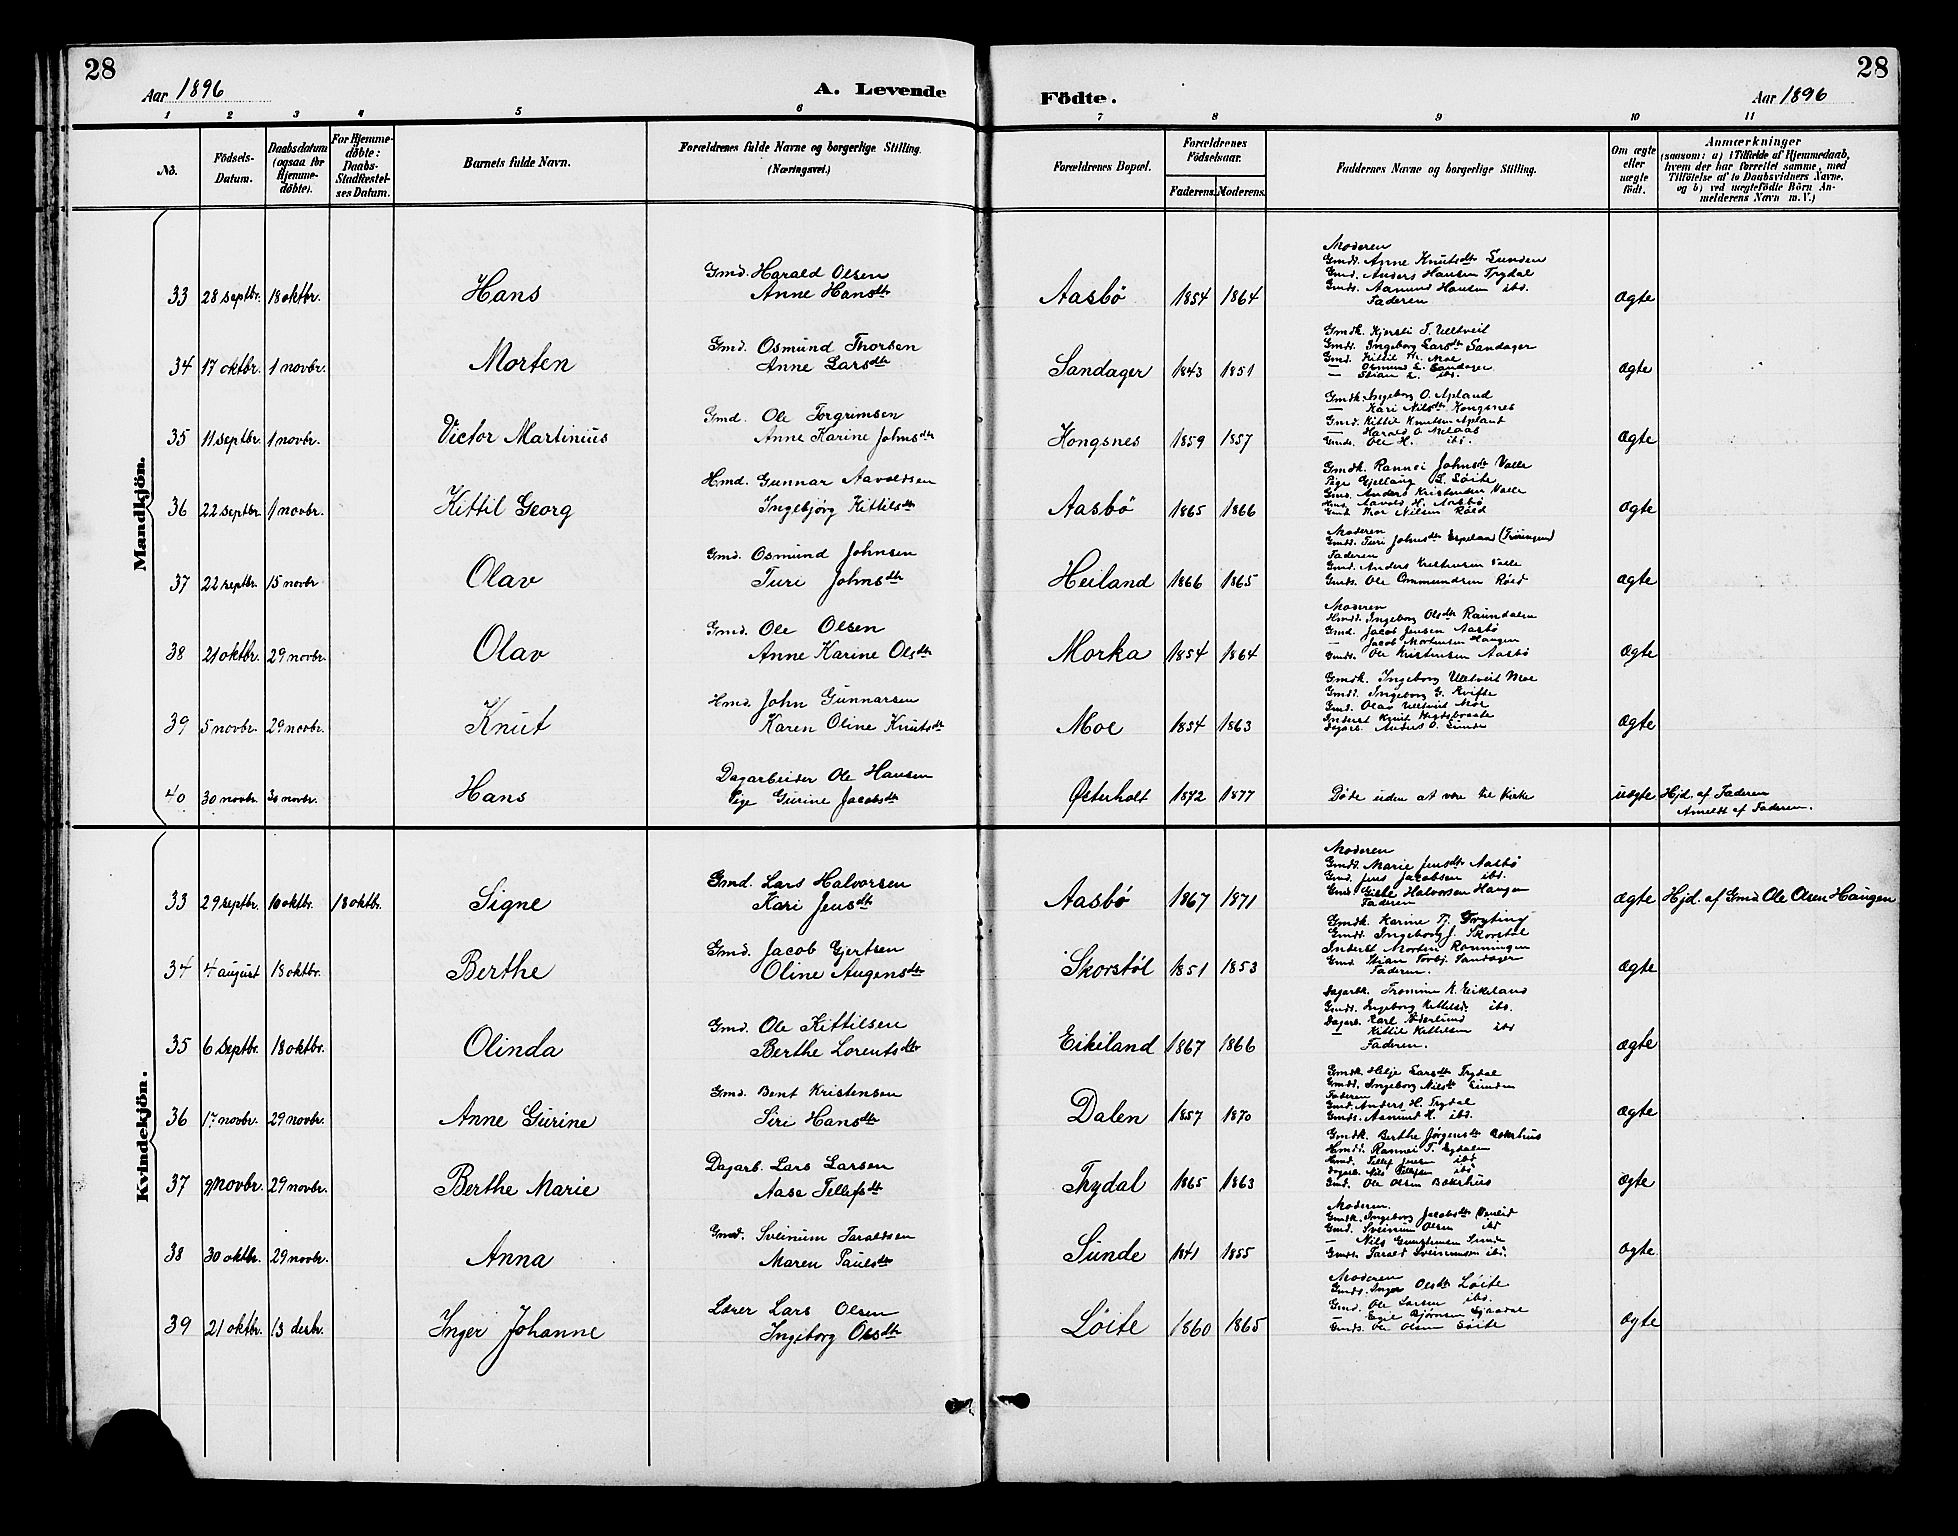 28
Aar 1896
A. Levende
Födte.
Aar 1896
28
1 2 3 4 5 6 7 8 9 10 11
No.
Födsels-
Datum.
Daabsdatum
(ogsaa for
Hjemme-
döbte).
For Hjemme-
döbte:
Daabs-
Stadfæstel-
ses Datum.
Barnets fulde Navn.
Forældrenes fulde Navne og borgerlige Stilling.
(Næringsvei.)
Forældrenes Bopæl.
Forældrenes
Födselsaar.
Faderens.
Moderens.
Faddernes Navne og borgerlige Stilling.
Om ægte
eller
uægte
födt.
Anmærkninger
(saasom: a) i Tilfælde af Hjemmedaab,
hvem der har forrettet samme, med
Tilföielse af to Daabsvidners Navne,
og b) ved uægtefödte Börn An-
melderens Navn m. V.)
Mandkjön.
33 28 septbr. 18 oktbr. Hans
Gmd. Harald Olsen
Anne Hansdtr
Aasbö 1854 1864
Moderen
Gmdt. Anne Knutsdtr Sunden
Gmd. Anders Hansen Trydal
Gmds. Aamund Hansen ibd.
Faderen
Ægte
34 17 oktbr. 1 novbr. Morten
Gmd. Osmund Thorsen
Anne Larsdtr
Sandager 1843 1851
Gmdk. Kjersti T. Ulltveit
Gmdt. Ingeborg Larsdtr Sandager
Gmd. Kittil Moe
— Osmund L. Sandager
— Stian L. ibd.
Ægte
35 11 septbr. 1 novbr. Victor Martinius
Gmd. Ole Torgrimsen
Anne Karine Johnsdtr
Kongsnes 1859 1857
Gmdk Ingeborg O. Apland
— Kari Nilsdtr Kongsnes
Gmd. Kittil Knutsen Aplant
— Harald O.
Gmds. Ole H. ibd.
Ægte
36 22 septbr. 1 novbr. Kittil Georg
Hmd. Gunnar Aavoldsen
Ingebjörg Kittilsdtr
Aasbö 1865 1866
Gmdk. Rannei Johnsdtr Valle
Pige L. Löite
Gmd. Anders Kristensen Valle
Hmd. Aavold H. Aasbö
Gmd Thor Nilsen Röed
Ægte
37 22 septbr 15 novbr Olav
Gmd. Osmund Johnsen
Turi Johnsdtr
Heiland 1866 1865
Moderen
Gmdt. Turi Johnsdtr Espeland
Faderen
Gmd. Anders Valle
Gmds. Ole Ommundsen Röed
Ægte
38 21 oktbr. 29 novbr. Olav
Gmd. Ole Olsen
Anne Karine Olsdtr
Morka 1854 1864
Moderen
Hmdt. Ingeborg Olsdtr Raundalen
Gmd. Jacob Jensen Aasbö
— Jacob Mortensen Haugen
Gmds. Ole Kristensen Aasbö
Ægte
39 5 novbr. 29 novbr. Knut
Hmd. John Gunnarsen
Karen Oline Knutsdtr
Moe 1854 1863
Gmdk. Ingeborg Ulltveit Moe
Gmdt. Ingeborg G. Kvifte
Gmd. Olav Ulltveit Moe
Inderst Knut
Dagarb. Anders O. Sunde
Ægte
40 30 novbr. 30 novbr. Hans
Dagarbeider Ole Hansen
Pige Gurine Jacobsdtr
Østerholt 1872 1877
Döde uden at være til Kirke
uægte
Hjd. af Faderen
Anmeldt af Faderen.
Kvindekjön.
33 29 septbr. 10 oktbr. 18 oktbr. Signe
Gmd. Lars Halvorsen
Kari Jensdtr
Aasbö 1867 1871
Moderen
Gmdt. Marie Jensdtr Aasbö
Gmd. Jens Jacobsen ibd.
Gmd Halvorsen Haugen
Faderen
Ægte
Hjd. af Gmd Ole Olsen Haugen
34 4 august 18 oktbr. Berthe
Gmd. Jacob Gjertsen
Oline Augensdtr
Skorstöl 1851 1853
Gmdk. Karine Tj. Fryting
Gmdt. Ingeborg J. Skorstöl
Inderst Morten Rönningen
Gmd Stian Torbj. Sandager
Faderen.
Ægte
35 6 septbr. 18 oktbr. Olinda
Gmd. Ole Kittilsen
Berthe Lorentsdtr
Eikiland 1867 1866
Dagarbk. Tromine K. Eikeland
Gmdt. Ingeborg Kittilsd. ibd.
Dagarb. Karl
— Kittil Kittelsen ibd
Faderen.
Ægte
36 17 novbr. 29 novbr. Anne Gurine
Gmd. Bent Kristensen
Siri Hansdtr
Dalen 1857 1870
Gmdk. Helje Larsdtr Trydal
Gmdt. Ingeborg Nilsdt Sunden
Faderen
Gmd. Anders H. Trydal
Gmds. Aamund H. ibd.
Ægte
37 9 novbr. 29 novbr. Berthe Marie
Dagarb. Lars Larsen
Aase Tellefsdt
Trydal 1865 1863
Gmdk. Berthe Jörgensdt Bokrhus
Hmdt. Rannei T.
Hmd. Tellef Jensen ibd
Dagarb. Nils Tellefsen ibd
Gmd. Ole Olsen Bokrhus
Ægte
38 30 oktbr. 29 novbr. Anna
Gmd. Sveinum Taraldsen
Maren Paulsdtr
Sunde 1841 1855
Moderen.
Gmdk. Ingeborg Jacobsdtr
Gmd. Sveinum Olsen ibd
— Nils Sunde
Gmds. Tarald Sveinumsen ibd.
Ægte
39 21 oktbr. 13 decbr. Inger Johanne
Lærer Lars Olsen
Ingeborg Olsdtr
Löite 1860 1865
Moderen
Gmdt. Inger Olsdtr Löite
Gmd. Ole Larsen ibd.
— Björnsen
Gmds. Ole Olsen Löite
Ægte